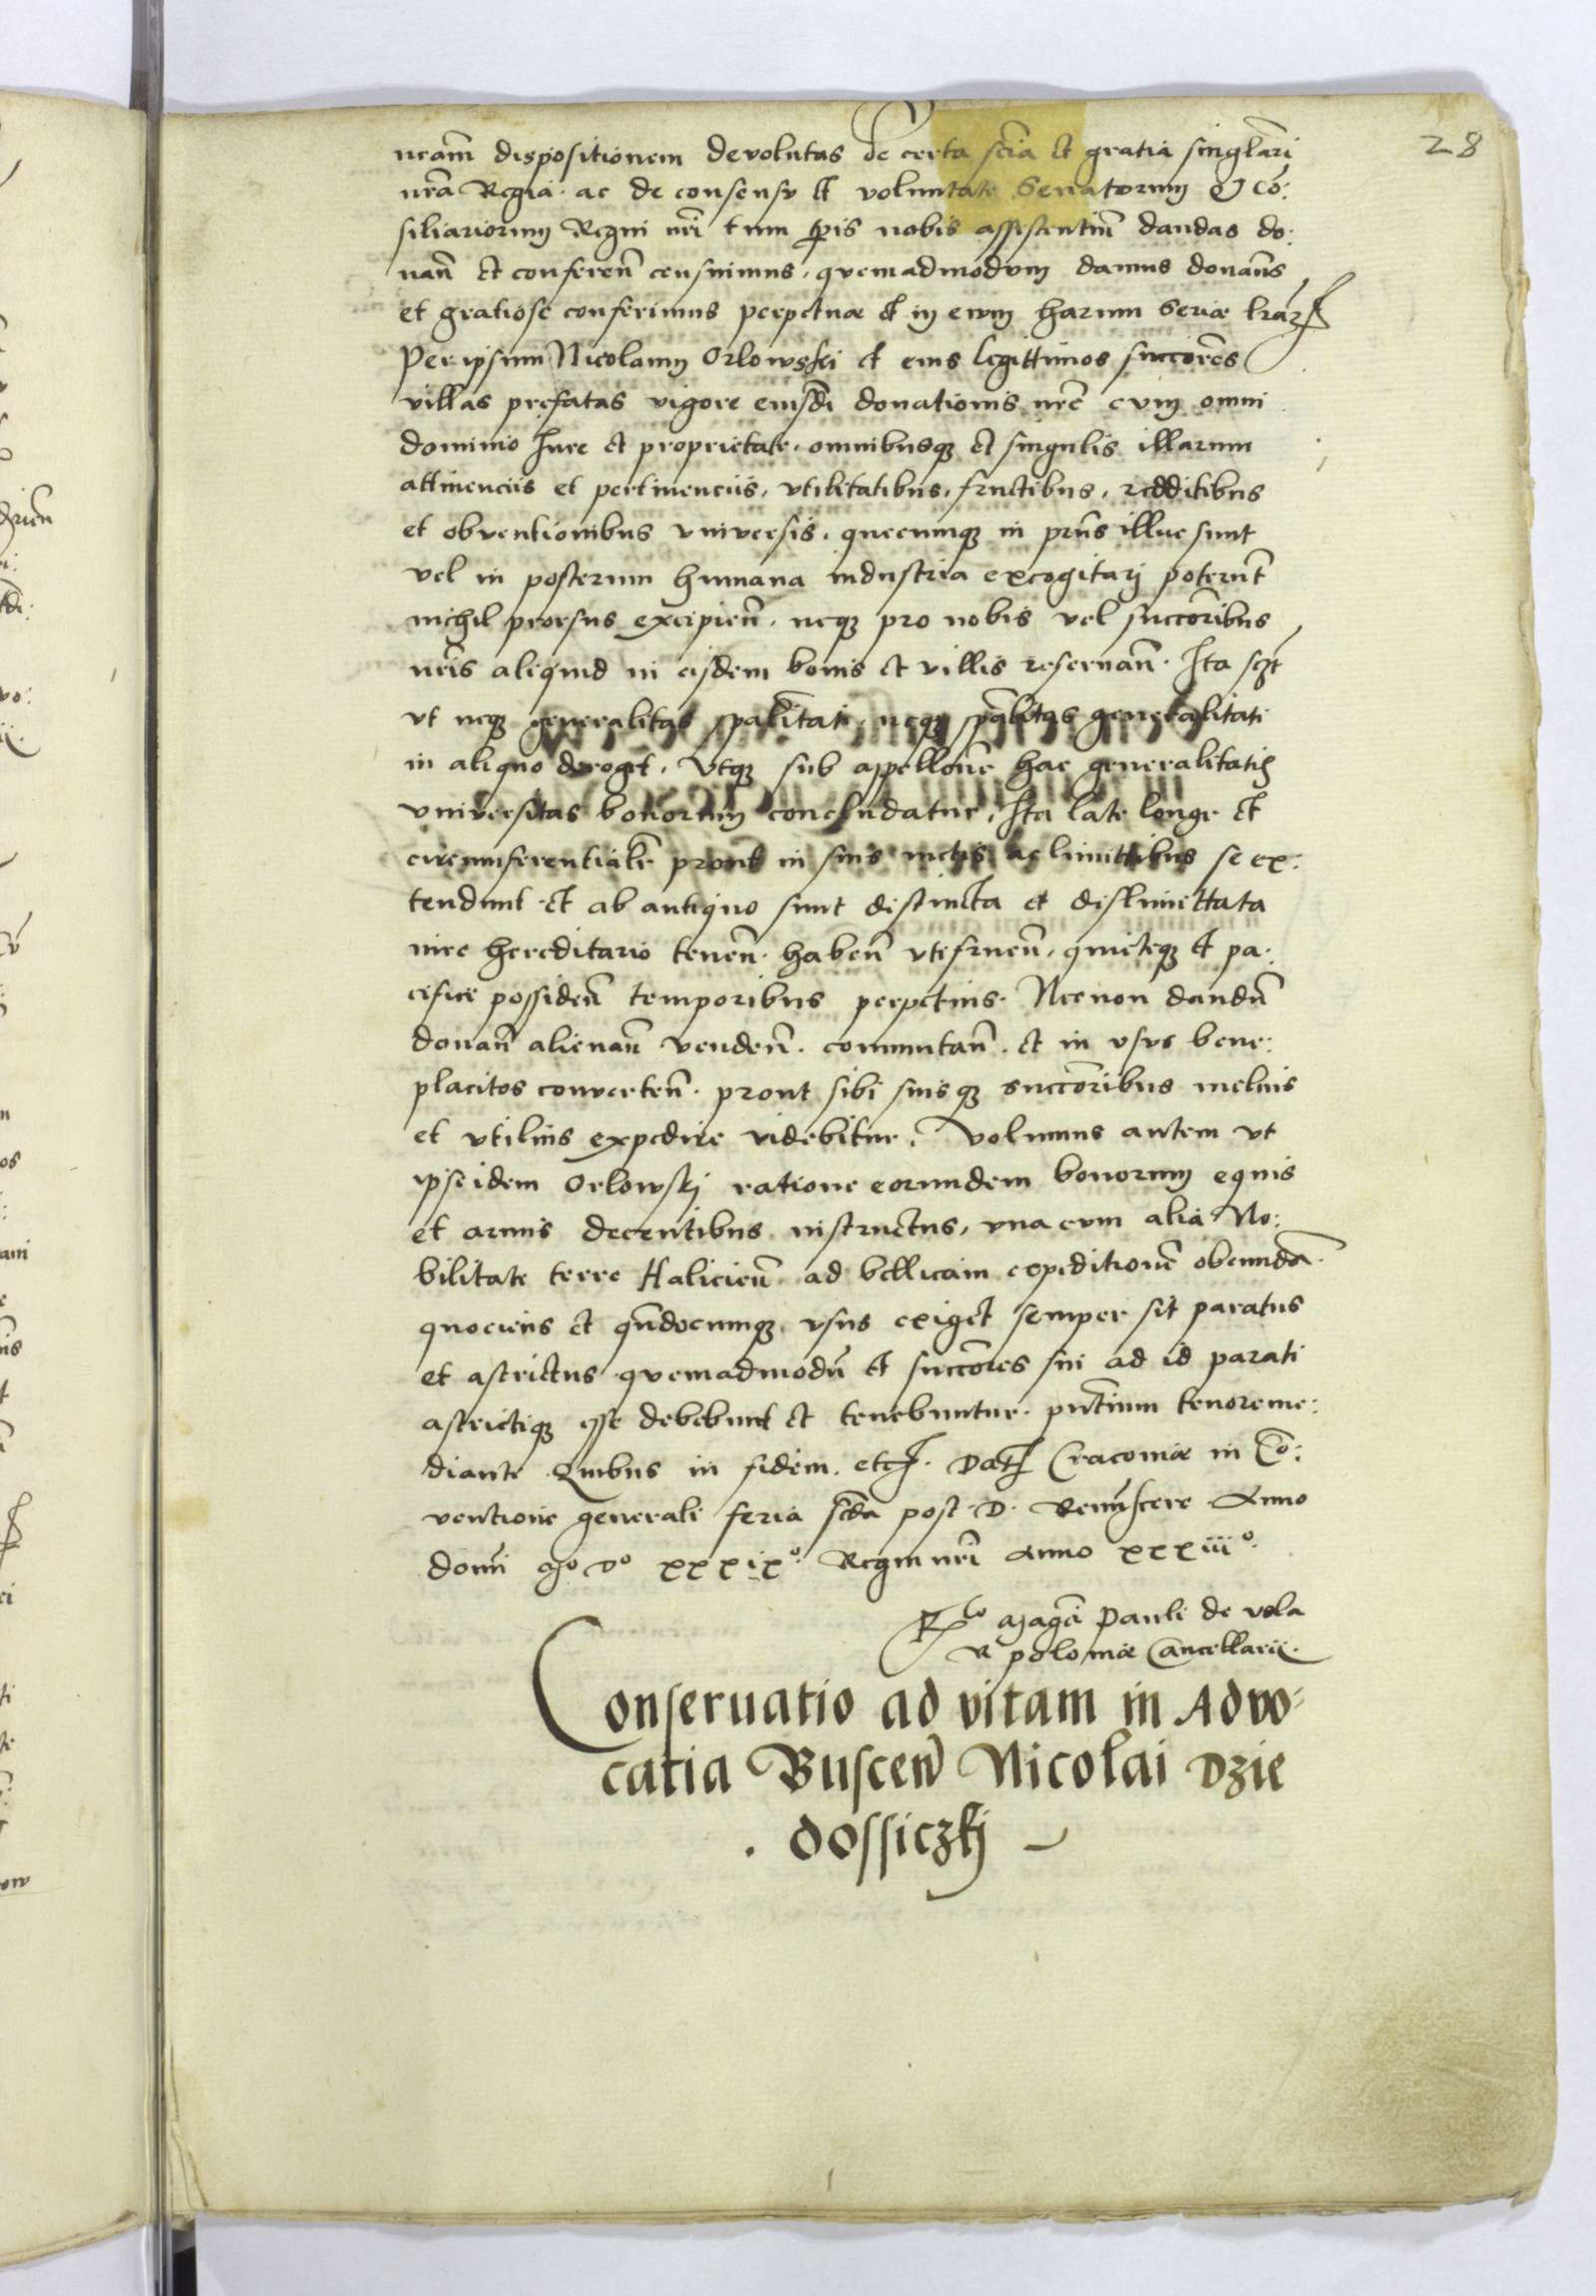 28
nram dispositionem devolutas de certa scia et gratia singlari
nra Regia ac de consensv et voluntate Senatorum et Co:
siliariorum Regni nri tum pis nobis assistentium dandas do:
nan et conferen censuimus, quemadmodvm damus donams
et gratiose conferimus perpetuæ et in evm harum Seriæ lrar
Per ipsum Nicolaum Orlowski et eius legittimos succores
villas prefatas vigore eiusdi donationis nre cvm omni
dominio Iure et proprietate, omnibusq et singulis illarum
attinenciis et pertinenciis, vtilitatibus, fructibus, redditibus
et obventionibus vniversis, quecunq in prns illuc sunt
vel in posterum humana industria excogitarj poterunt
nichil prorsus excipien, neq pro nobis vel succoribus
nris aliquid in eisdem bonis et villis reseruan. Ita sczt
vt neq generalitas spalitati, neq spalitas generalitati
in aliquo deroget, Vtq sub appellone hac generalitatis
vniversitas bonorum concludatur, Ita late longe et
circumferentialr prout in suis metis ac limittibus se ex:
tendunt et ab antiquo sunt distincta et dislimittata
iure hereditario tenen. haben vtifruen, quieteq et pa:
cifice possiden temporibus perpetuis. Necnon dandum
donan alienan venden. commutan. et in vsvs bene:
placitos converten. prout sibi suisq succoribus melius
et vtilius expedire videbitur. Volumus autem vt
ipse idem Orlowskj ratione eorundem bonorum equis
et armis decentibus instructus, vna cvm alia No:
bilitate terre Halicien. ad bellicam expeditione obeunda.
quociens et qndocunq vsus exiget semper sit paratus
et astrictus quemadmodu et succores sui ad id parati
astrictiq esse debebunt et tenebuntur. pntium tenore me:
diante Quibus in fidem. etc. Dat Cracouiæ in Co:
ventione generali feria scda post D. Reminiscere Anno
domi Mo Do xxxixo. Regni nri Anno xxxiiio.
Rlo Magci Pauli de vola
R poloniæ Cancellarii.
Conseruatio ad vitam in Advo:
catia Buscen Nicolai Dzie
. dossiczkj